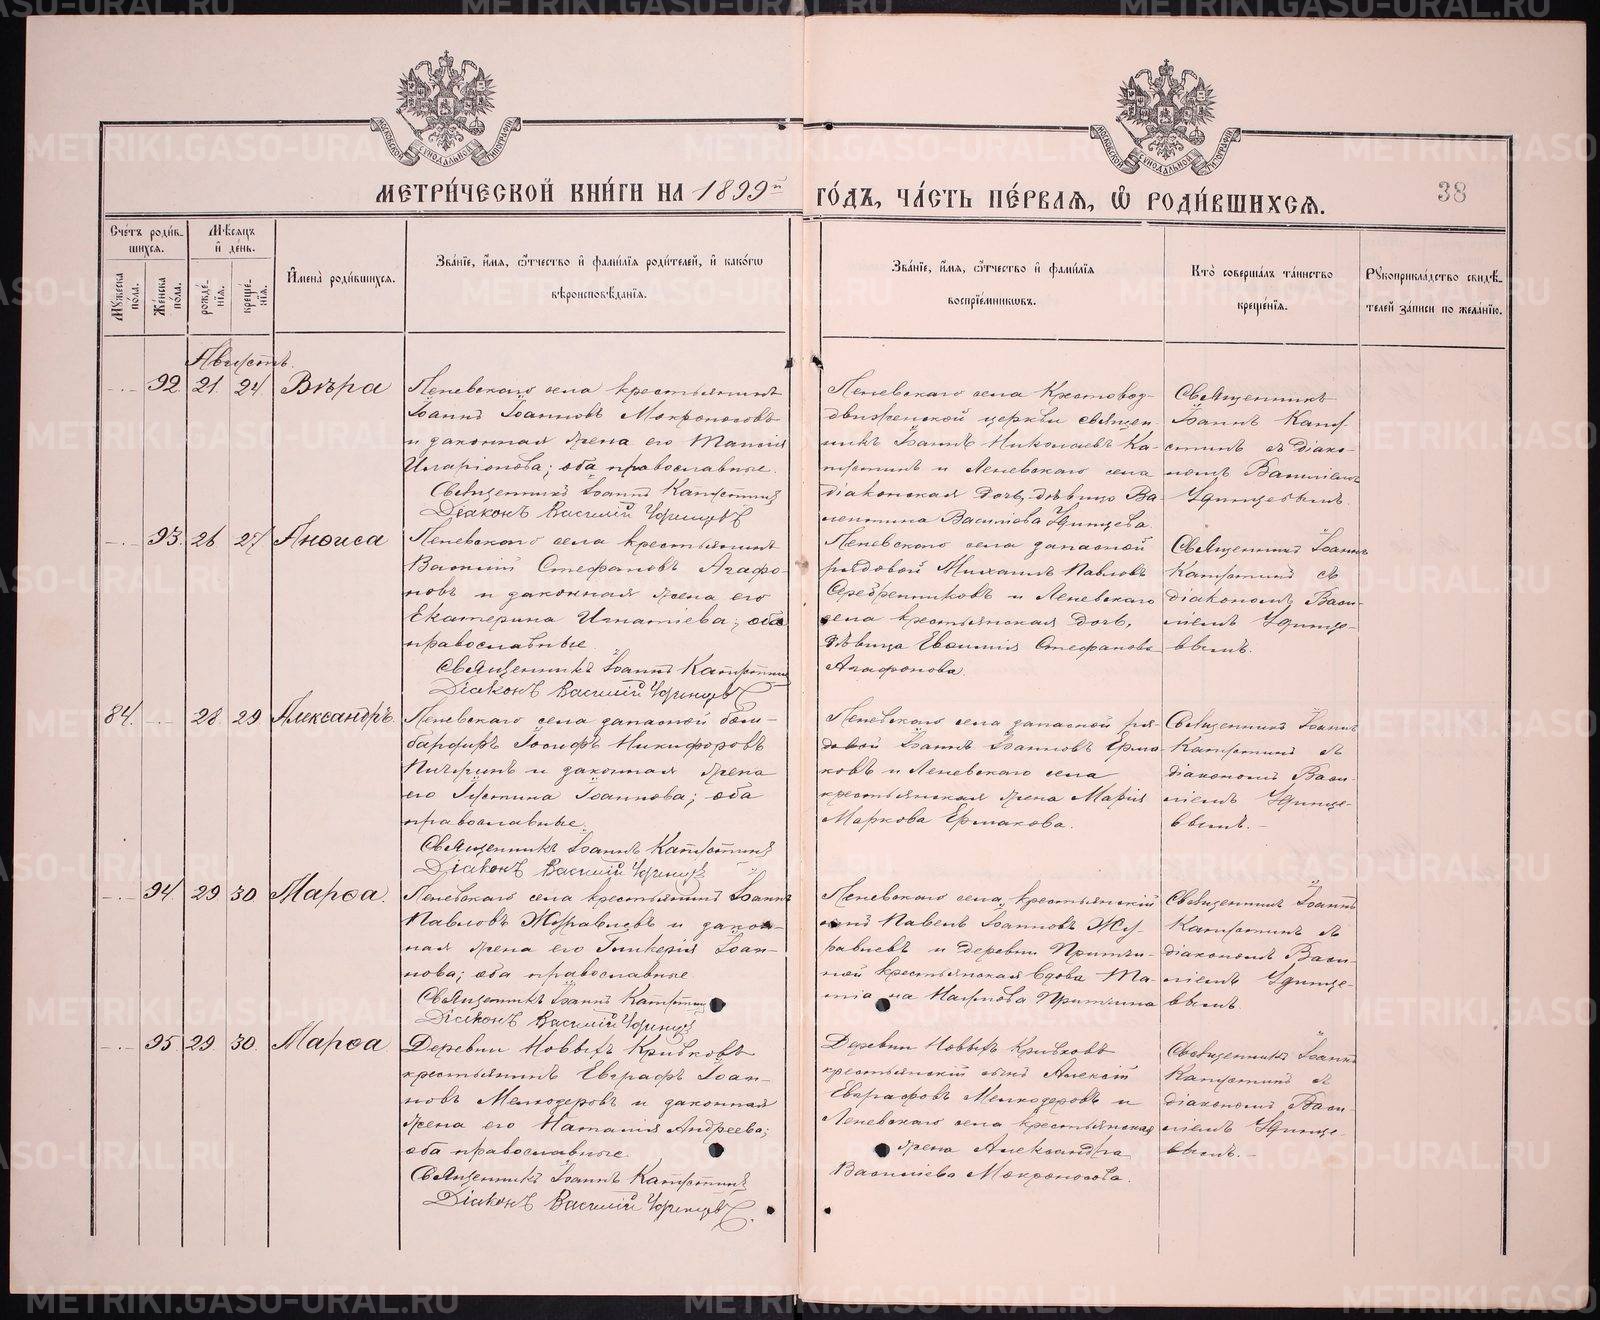 МОСКОВСКОЙ СѴНОДАЛЬНОЙ ТИПОГРАФІИ
МОСКОВСКОЙ СѴНОДАЛЬНОЙ ТИПОГРАФІИ
МЕТРИ́ЧЕСКОЙ КНИ́ГИ НА 1899й
ГО́ДЪ, ЧА́СТЬ ПЕ́РВАЯ, Ѿ РОДИ́ВШИХСЯ.
38
Сче́тъ роди́в-
шихся.
Мѣсяцъ
и҆ де́нь.
Му́жеска
по́ла.
Же́нска
по́ла.
рожде́-
нїя.
креще́-
нїя.
И҆мена̀ роди́вшихся.
Зва́нїе, и҆́мя, ѻ҆́тчество и҆ фами́лїя роди́телей, и҆ како́гѡ
вѣроисповѣ́данїя.
Зва́нїе, и҆́мя, ѻ҆́тчество и҆ фами́лїя
воспрїе́мникѡвъ.
Кто̀ соверша́лъ та́инство
креще́нїя.
Рукоприкла́дство свидѣ́-
телей за́писи по жела́нїю.
Августъ.
92 21 24 Вѣра
Леневскаго села крестьянинъ
Іоаннъ Іоанновъ Мокроносовъ
и законная жена его Таисія
Иларіонова; оба православные.
Священникъ Іоаннъ Капустинъ
Діаконъ Василій Удинцевъ
Леневскаго села Крестовоз-
движенской церкви священ-
никъ Іоаннъ Николаевъ Ка-
пустинъ и Леневскаго села
діаконская дочь, дѣвица Ва-
лентина Василіева Удинцева.
Священникъ
Іоаннъ Капу-
стинъ съ діако-
номъ Василіемъ
Удинцевымъ.
93. 26 27 Анѳиса
Леневскаго села крестьянинъ
Василій Стефановъ Агафо-
новъ и законная жена его
Екатерина Игнатіева; оба
православные.
Священникъ Іоаннъ Капустинъ
Діаконъ Василій Удинцевъ
Леневскаго села запасной
рядовой Михаилъ Павловъ
Серебренниковъ и Леневскаго
села крестьянская дочь,
дѣвица Евѳимія Стефанова
Агафонова.
Священникъ Іоаннъ
Капустинъ съ
діакономъ Васи-
ліемъ Удинце-
вымъ.
84. 28 29 Александръ.
Леневскаго села запасной бом-
бардиръ Іосифъ Никифоровъ
Пичугинъ и законная жена
его Іустина Іоаннова; оба
православные.
Священникъ Іоаннъ Капустинъ
Діаконъ Василій Удинцевъ
Леневскаго села запасной ря-
довой Іоаннъ Іоанновъ Ерма-
ковъ и Леневскаго села
крестьянская жена Марія
Маркова Ермакова.
Священникъ Іоаннъ
Капустинъ съ
діакономъ Васи-
ліемъ Удинце-
вымъ.
94. 29 30 Марѳа.
Леневскаго села крестьянинъ Іоаннъ
Павловъ Журавлевъ и закон-
ная жена его Гликерія Іоан-
нова; оба православные
Священникъ Іоаннъ Капустинъ
Діаконъ Василій Удинцевъ
Леневскаго села, крестьянскій
сынъ Павелъ Іоанновъ Жу-
равлевъ и деревни
крестьянская вдова
Наумова
Священникъ Іоаннъ
Капустинъ съ
діакономъ Васи-
ліемъ Удинце-
вымъ.
95. 29 30. Марѳа
Деревни Новыхъ Кривковъ
крестьянинъ Евграфъ Іоан-
новъ Мелкозеровъ и законная
жена его Наталія Андреева;
оба православные.
Священникъ Іоаннъ Капустинъ
Діаконъ Василій Удинцевъ
Деревни Новыхъ Кривковъ
крестьянскій сынъ Алексій
Евграфовъ Мелкозеровъ и
Леневскаго села крестьянская
жена Александра
Василіева Мокроносова.
Священникъ Іоаннъ
Капустинъ съ
діакономъ Васи-
ліемъ Удинце-
вымъ.
METRIKI.GASO-URAL.RU